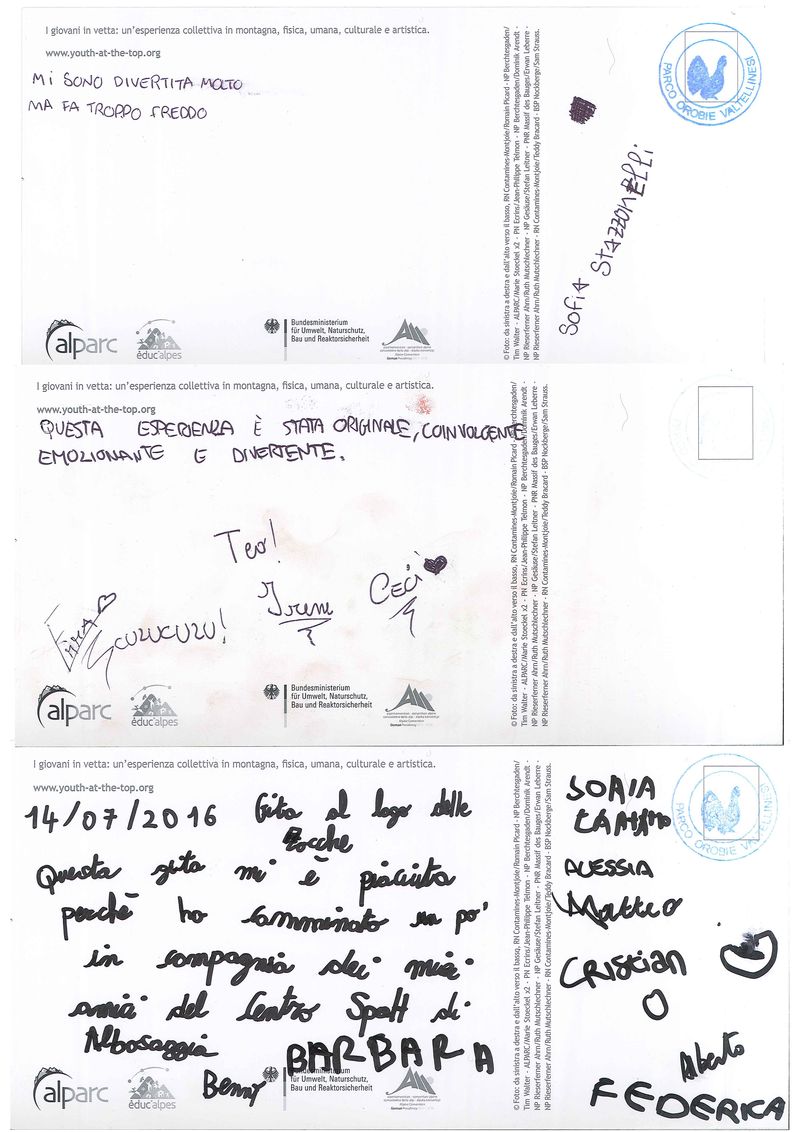 I giovani in vetta: un'esperienza collettiva in montagna, fisica, umana, culturale e artistica.
www.youth-at-the-top.org
MI SONO DIVERTITA MOLTO
MA FA TROPPO FREDDO
alparc
éduc'alpes
Bundesministerium
für Umwelt, Naturschutz,
Bau und Reaktorsicherheit
© Foto: da sinistra a destra e dall'alto verso il basso, RN Contamines-Montjoie/Romain Picard - NP Berchtesgaden/
Tim Walter - ALPARC/Marie Stoeckel x2 - PN Ecrins/Jean-Philippe Telmon - NP Berchtesgaden/Dominik Arendt -
NP Rieserferner Ahrn/Ruth Mutschlechner - NP Gesäuse/Stefan Leitner - PNR Massif des Bauges/Erwan Leberre -
NP Rieserferner Ahrn/Ruth Mutschlechner - RN Contamines-Montjoie/Teddy Bracard - BSP Nockberge/Sam Strauss.
SOFIA STAZZONELLI
PARCO OROBIE VALTELLINESI
I giovani in vetta: un'esperienza collettiva in montagna, fisica, umana, culturale e artistica.
www.youth-at-the-top.org
QUESTA ESPERIENZA È STATA ORIGINALE, COINVOLGENTE
EMOZIONANTE E DIVERTENTE.
Teo!
Irene
Ceci
CUZUCUZU!
alparc
éduc'alpes
Bundesministerium
für Umwelt, Naturschutz,
Bau und Reaktorsicherheit
© Foto: da sinistra a destra e dall'alto verso il basso, RN Contamines-Montjoie/Romain Picard - NP Berchtesgaden/
Tim Walter - ALPARC/Marie Stoeckel x2 - PN Ecrins/Jean-Philippe Telmon - NP Berchtesgaden/Dominik Arendt -
NP Rieserferner Ahrn/Ruth Mutschlechner - NP Gesäuse/Stefan Leitner - PNR Massif des Bauges/Erwan Leberre -
NP Rieserferner Ahrn/Ruth Mutschlechner - RN Contamines-Montjoie/Teddy Bracard - BSP Nockberge/Sam Strauss.
I giovani in vetta: un'esperienza collettiva in montagna, fisica, umana, culturale e artistica.
www.youth-at-the-top.org
14/07/2016 Gita al lago delle
Zocche
Questa gita mi è piaciuta
perchè ho camminato un po'
in compagnia dei miei
amici del Centro Spott di
Albosaggia
BARBARA
Benny
alparc
éduc'alpes
für Umwelt, Naturschutz,
Bau und Reaktorsicherheit
© Foto: da sinistra a destra e dall'alto verso il basso, RN Contamines-Montjoie/Romain Picard - NP Berchtesgaden/
Tim Walter - ALPARC/Marie Stoeckel x2 - PN Ecrins/Jean-Philippe Telmon - NP Berchtesgaden/Dominik Arendt -
NP Rieserferner Ahrn/Ruth Mutschlechner - NP Gesäuse/Stefan Leitner - PNR Massif des Bauges/Erwan Leberre -
NP Rieserferner Ahrn/Ruth Mutschlechner - RN Contamines-Montjoie/Teddy Bracard - BSP Nockberge/Sam Strauss.
PARCO OROBIE VALTELLINESI
ALESSIA
Matteo
CRISTIAN
Alberto
FEDERICA